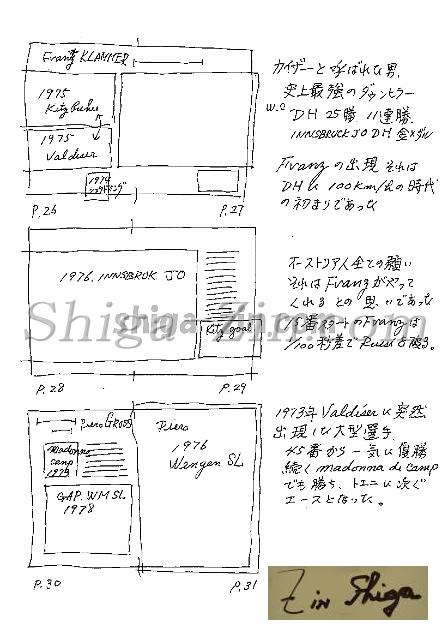 Franz KLAMMER
1975
Kitzbuhel
1975
Valdiser
1974
P.26
P.27
カイザーと呼ばれた男、
史上最強のダウンヒラー
W.C DH 25勝 11連勝
INNSBRUCK JO DH 金メダル
Franzの出現 それは
DHに100Km/hの時代
の初まりであった
1976. INNSBRUK JO
Kitz goal
P.28
P.29
オーストリア人全ての願い
それはFranzがやって
くれる との思いであった
15番スタートのFranzは
1/100秒差でRussiを破る。
Piero GROSS
madonna
camp
1973
GAP. WM SL
1978
Piero
1976
Wengen SL
P.30
P.31
1973年 Valdiserに突然
出現した大型選手
45番から一気に優勝
続く madonna di camp
でも勝ち、トエニに次ぐ
エースとなった。
Shiga Zin.com
Z in Shiga